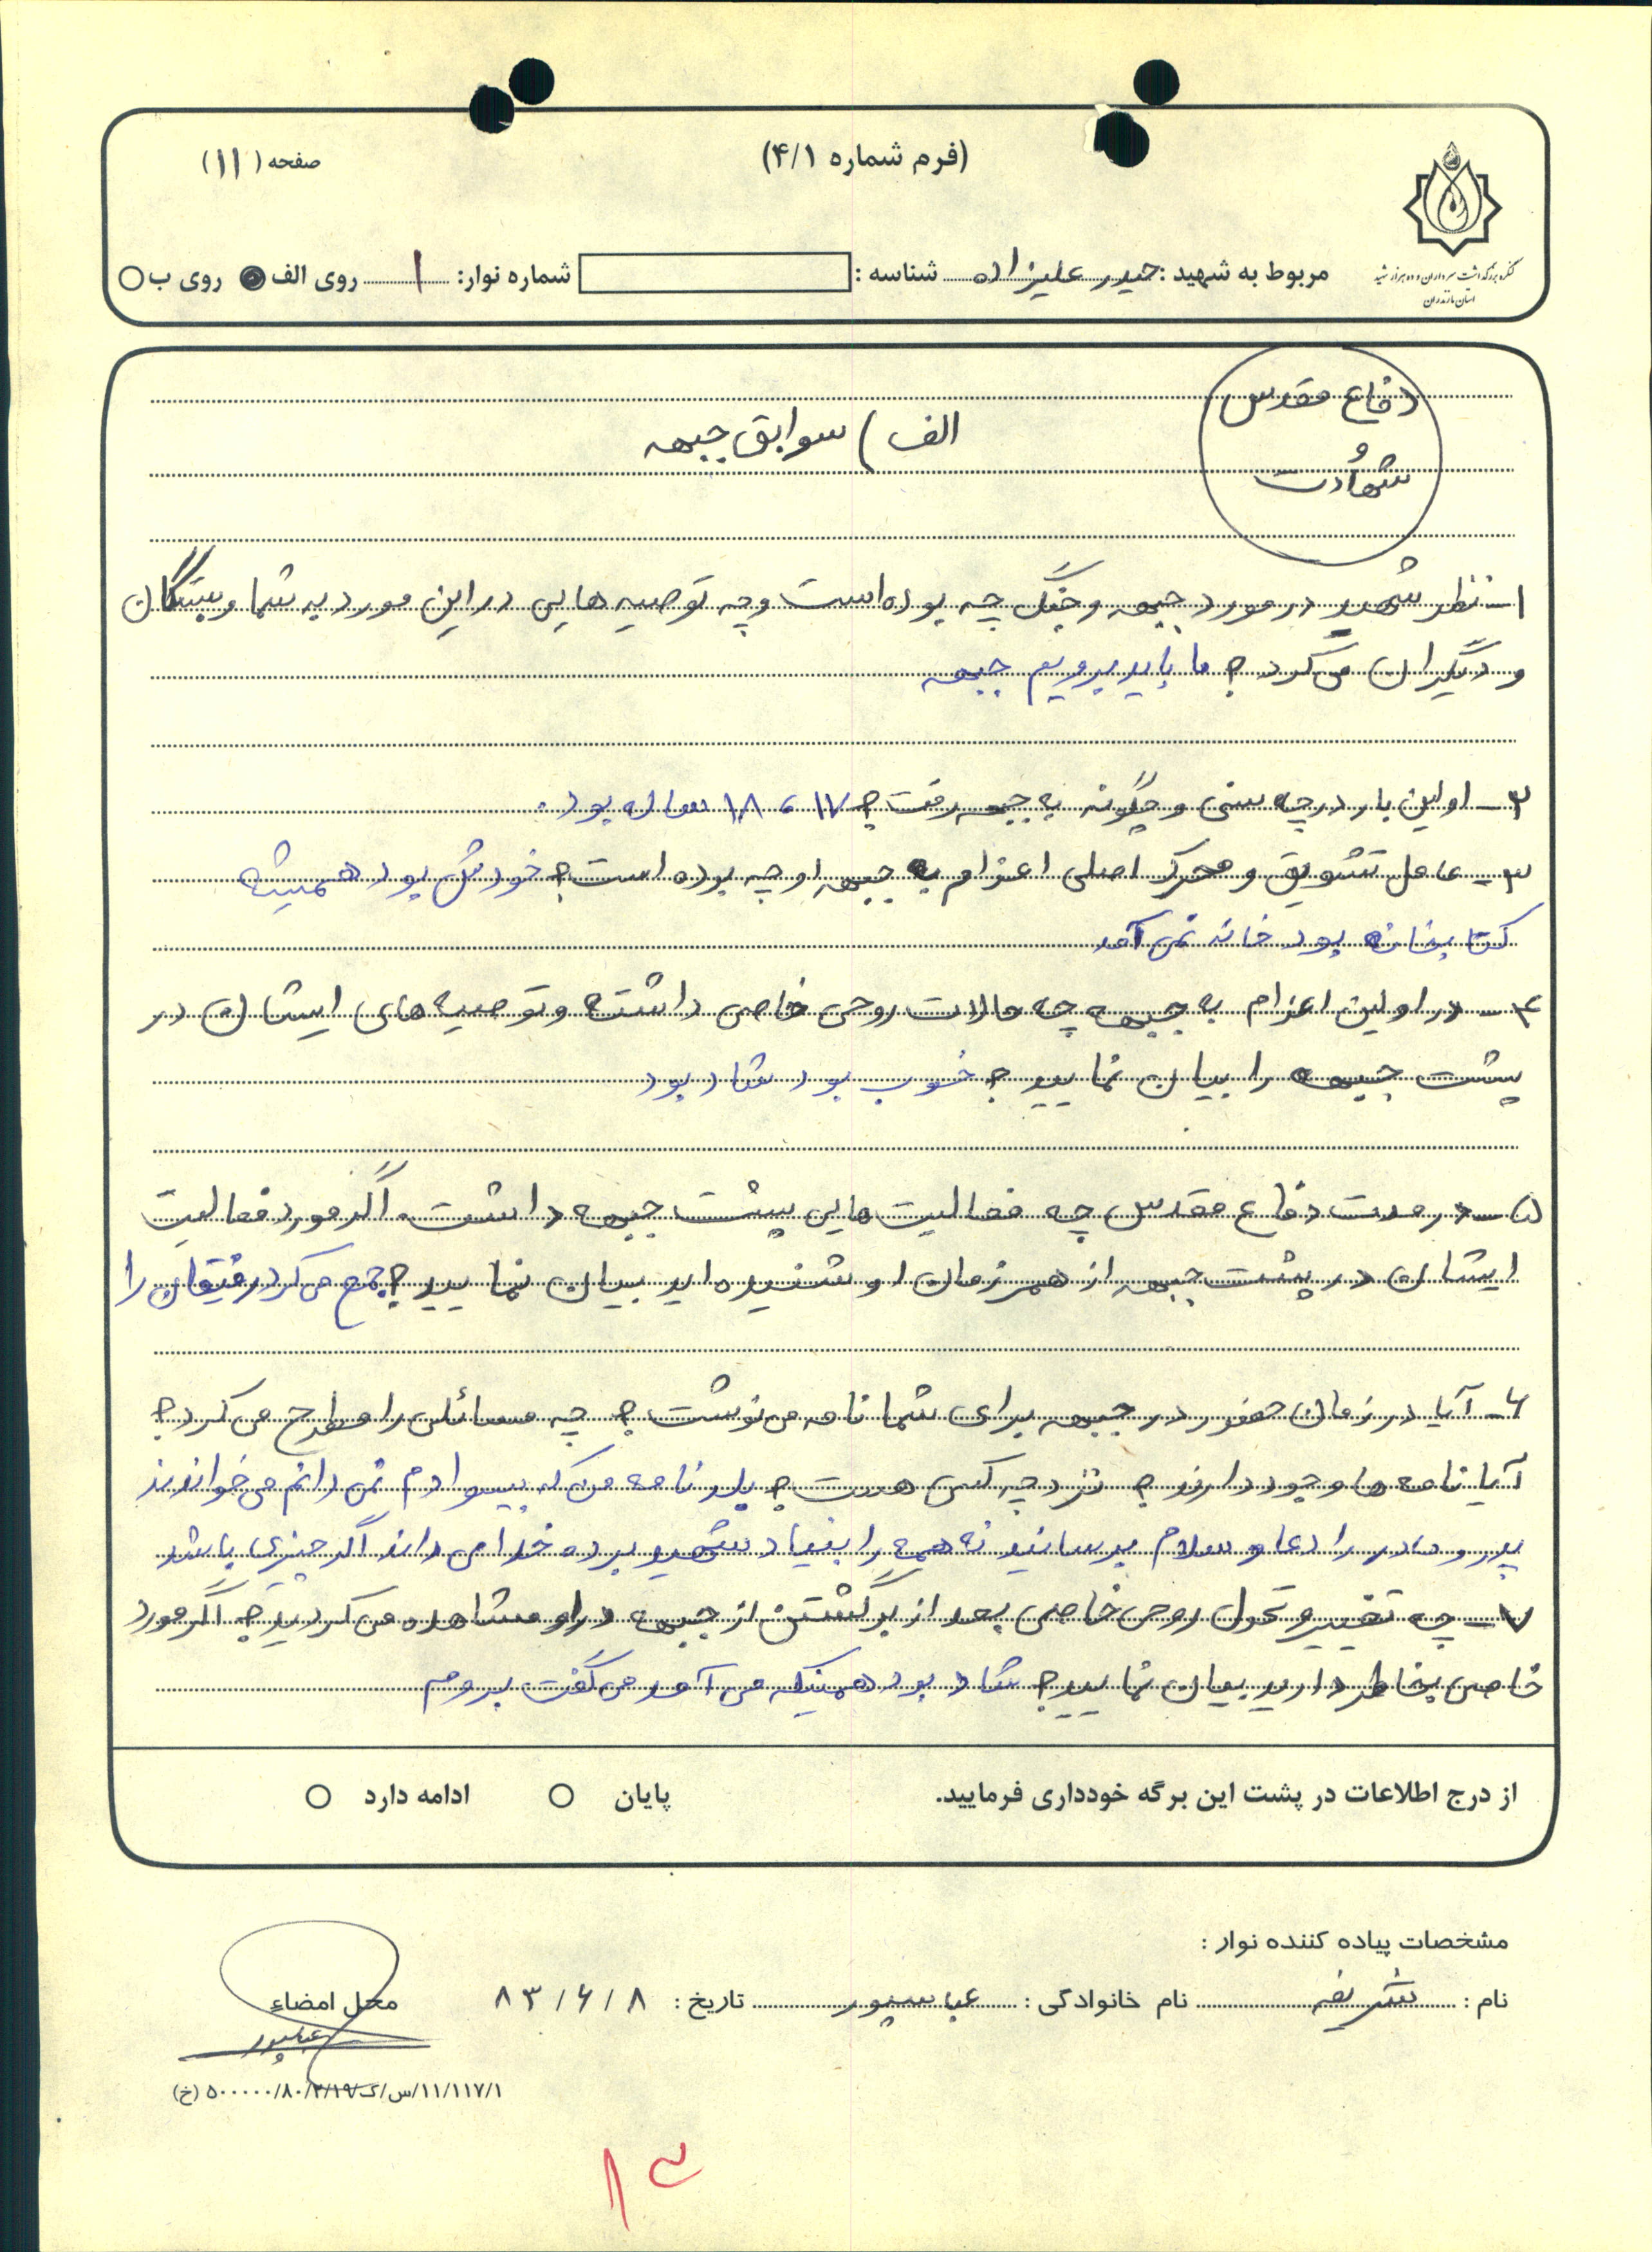 (فرم شماره ۴/۱)
صفحه (۱۱)
کنگره بزرگداشت سرداران و ده هزار شهید
استان مازندران
مربوط به شهید: حیدر علیزاده شناسه: شماره نوار: ۱ روی الف روی ب
دفاع مقدس
و
شهادت
الف) سوابق جبهه
۱- نظر شهید در مورد جبهه و جنگ چه بوده است و چه توصیه هایی در این مورد به شما و بستگان
و دیگران می کرد؟ ما باید برویم جبهه
۲- اولین بار در چه سنی و چگونه به جبهه رفت؟ ۱۷، ۱۸ ساله بود.
۳- عامل تشویق و محرک اصلی اعزام به جبهه او چه بوده است؟ خودش بود همیشه
کتابخانه بود خانه نمی آمد
۴- در اولین اعزام به جبهه چه حالات روحی خاصی داشته و توصیه های ایشان در
پشت جبهه را بیان نمایید؟ خوب بود شاد بود
۵- در مدت دفاع مقدس چه فعالیت هایی پشت جبهه داشت. اگر مورد فعالیت
ایشان در پشت جبهه از همرزمان او شنیده اید بیان نمایید؟ جمع می کرد رفیقان را
۶- آیا در زمان حضور در جبهه برای شما نامه می نوشت؟ چه مسائلی را مطرح می کرد؟
آیا نامه ها وجود دارند؟ نزد چه کسی هست؟ بله نامه من که بیسوادم نمی دانم می خواندند
پدر و مادر را دعا و سلام برسانید نه همه را بنیاد شهید برده خدا می داند اگر چیزی باشد
۷- چه تغییر و تحول روحی خاصی بعد از برگشتن از جبهه در او مشاهده می کردید؟ اگر مورد
خاصی بخاطر دارید بیان نمایید؟ شاد بود همینکه می آمد می گفت بروم
از درج اطلاعات در پشت این برگه خودداری فرمایید. پایان ادامه دارد
مشخصات پیاده کننده نوار:
نام: شریفه نام خانوادگی: عباسپور تاریخ: ۸۳/۶/۸ محل امضاء
عباسپور
۱۱/۱۱۷/۱/س/ک/۵۰۰۰۰۰/۸۰/۳/۱۹ (خ)
۱۳